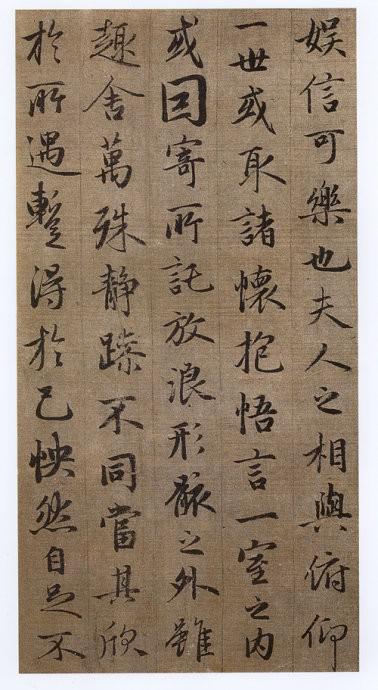 娱信可樂也夫人之相與俯仰
一世或取諸懷抱悟言一室之内
或因寄所託放浪形骸之外雖
趣舍萬殊静躁不同當其欣
於所遇蹔得於己怏然自足不